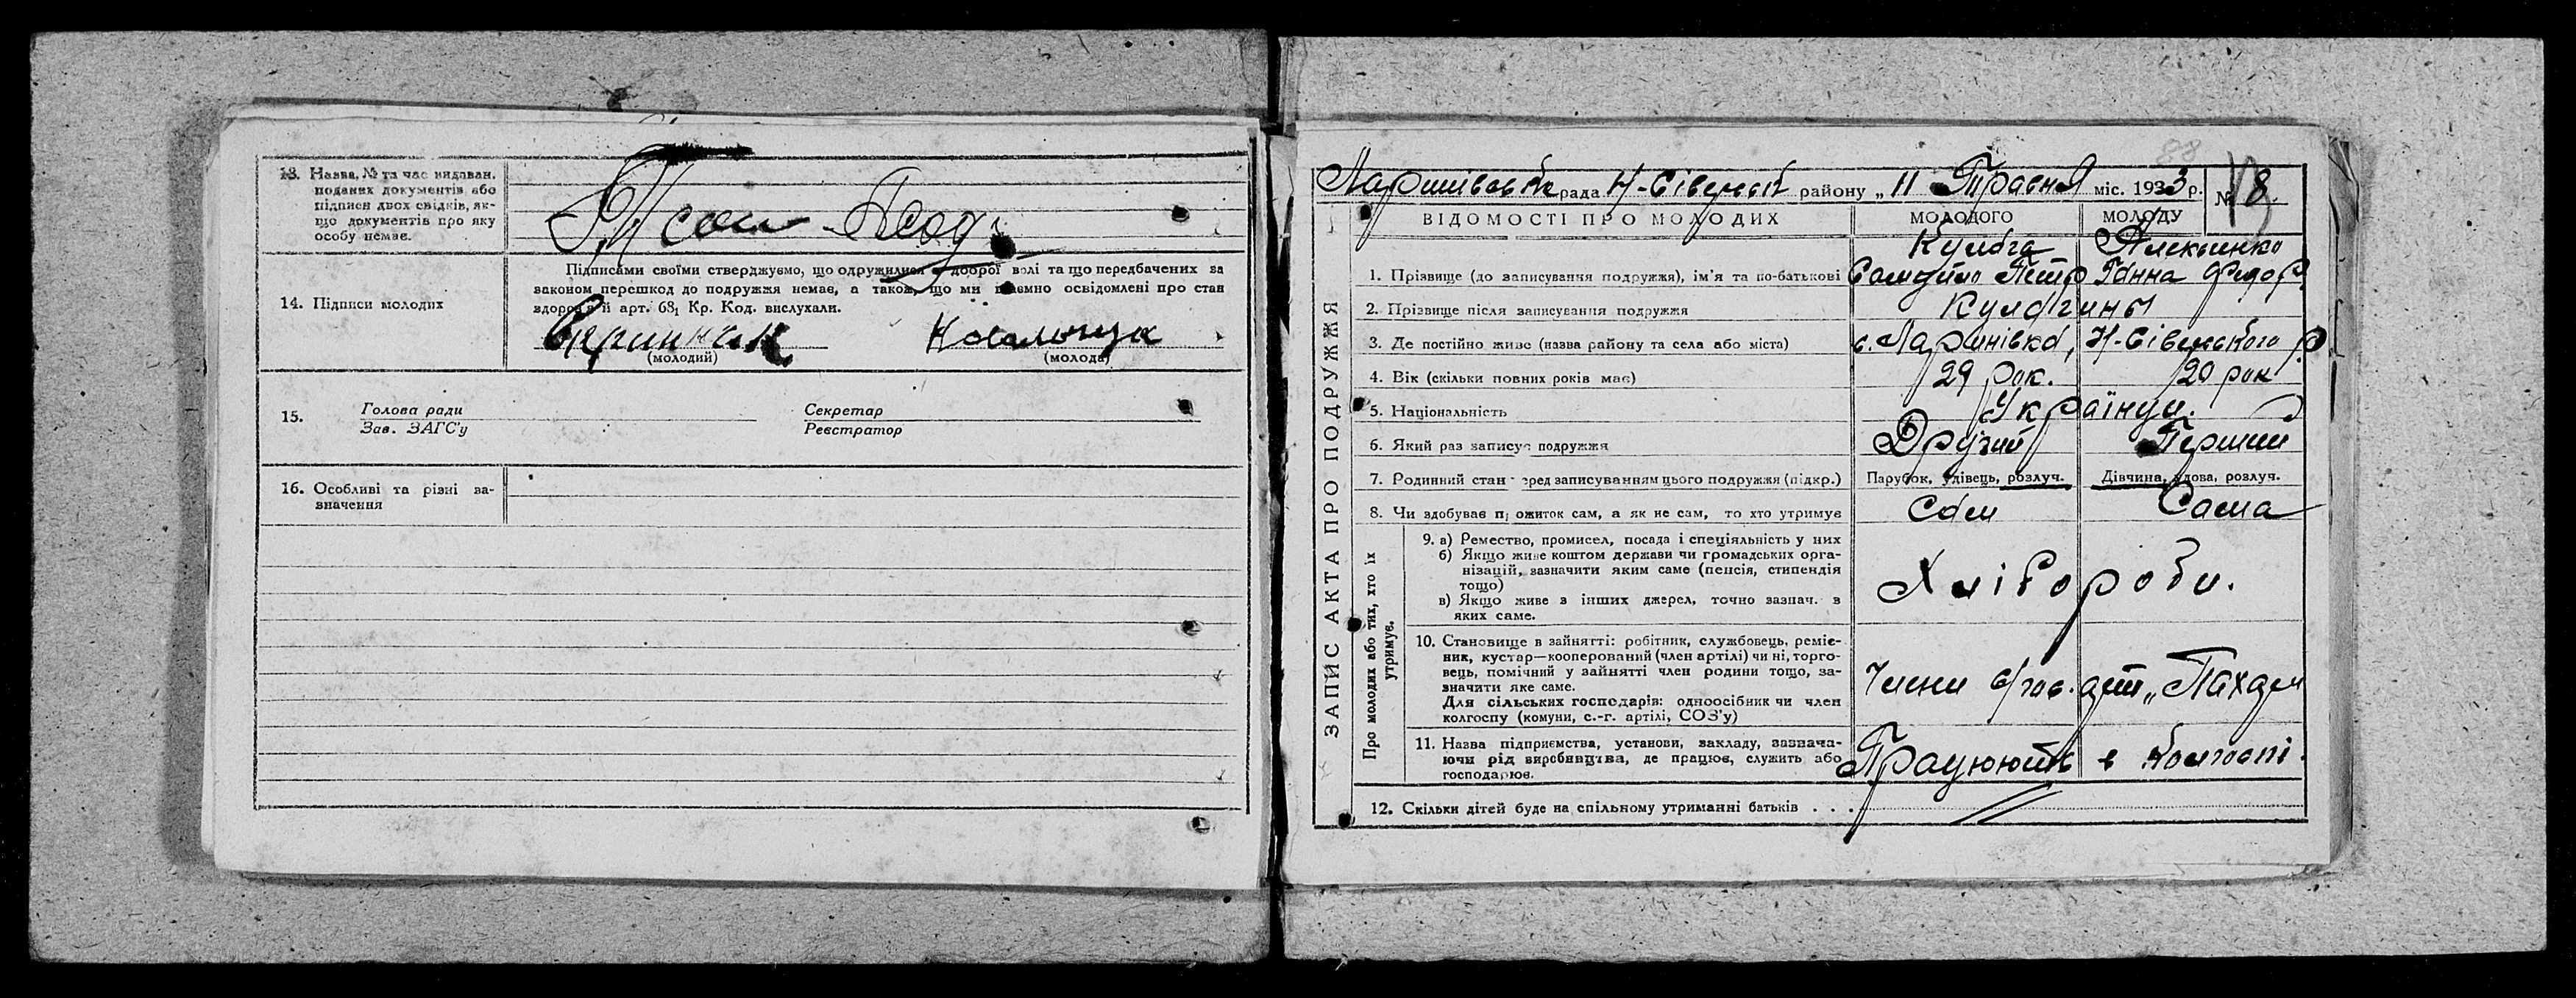 13. Назва, № та час видаван.
поданих документів або
підписи двох свідків, як-
що документів про яку
особу немає.
14. Підписи молодих
Підписами своїми стверджуємо, що одружилися з доброї волі та що передбачених за
законом перешкод до подружжя немає, а також, що ми взаємно освідомлені про стан
здоров'я й арт. 68₁ Кр. Код. вислухали.
(молодий) (молода)
15. Голова ради Секретар
Зав. ЗАГС'у Реєстратор
16. Особливі та різні за-
значення
88
рада Н-Сіверськ району „ 11 Травня міс. 1933 р. № 8.
ВІДОМОСТІ ПРО МОЛОДИХ МОЛОДОГО МОЛОДУ
ЗАПИС АКТА ПРО ПОДРУЖЖЯ
1. Прізвище (до записування подружжя), ім'я та по-батькові Самуйло Петр Ганна Федор
2. Прізвище після записування подружжя
3. Де постійно живе (назва району та села або міста) с. Ларинівка, Н-Сіверського р
4. Вік (скільки повних років має) 29 рок. 20 рок
5. Національність Українці.
6. Який раз записує подружжя Другий Перший
7. Родинний стан перед записуванням цього подружжя (підкр.) Парубок, удівець, розлуч. Дівчина, удова, розлуч.
8. Чи здобуває прожиток сам, а як не сам, то хто утримує Сам Сама
Про молодих або тих, хто їх
утримує.
9. а) Ремество, промисел, посада і спеціяльність у них
б) Якщо живе коштом держави чи громадських орга-
нізацій, зазначити яким саме (пенсія, стипендія
тощо)
в) Якщо живе з інших джерел, точно зазнач. з
яких саме.
Хлібороби.
10. Становище в зайнятті: робітник, службовець, реміс-
ник, кустар—кооперований (член артілі) чи ні, торго-
вець, помічний у зайнятті член родини тощо, за-
значити яке саме.
Для сільських господарів: одноосібник чи член
колгоспу (комуни, с.-г. артілі, СОЗ'у)
Члени с/гос. арт „Пахар
11. Назва підприємства, установи, закладу, зазнача-
ючи рід виробництва, де працює, служить або
господарює.
Працюють в колгоспі.
12. Скільки дітей буде на спільному утриманні батьків . . .